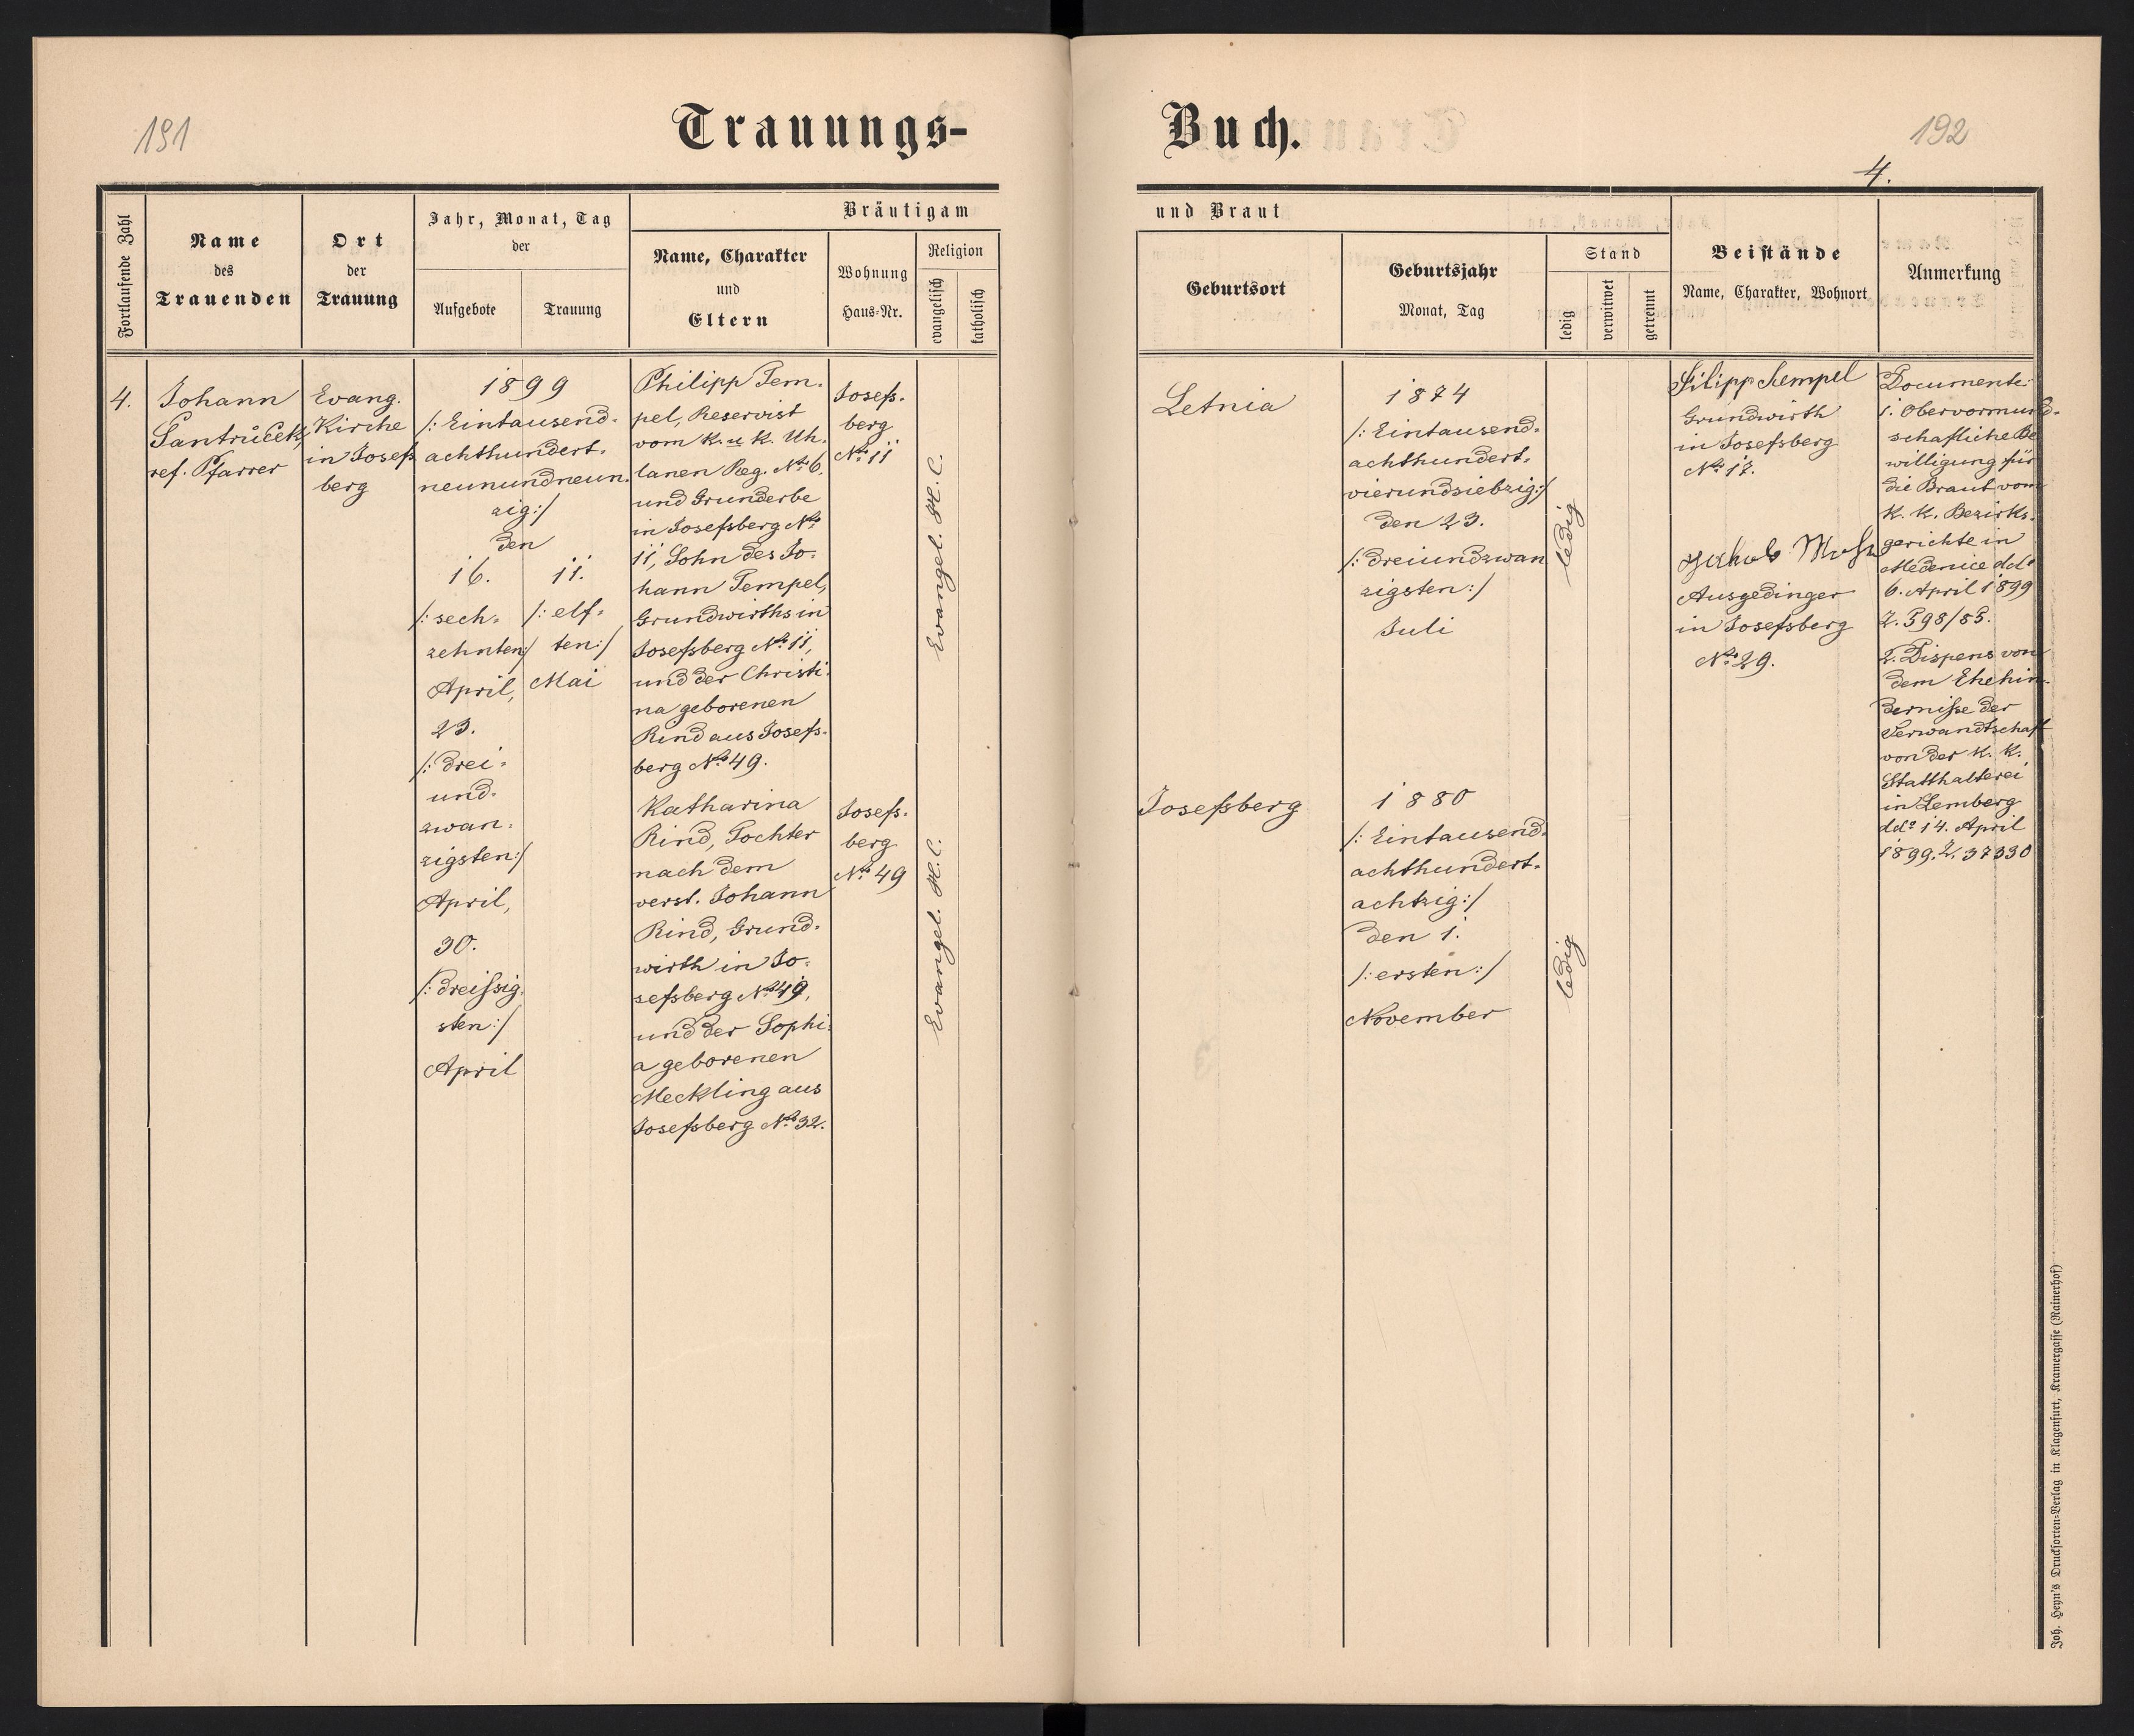 191
Trauungs-
Fortlaufende Zahl
Name
des
Trauenden
Ort
der
Trauung
Jahr, Monat, Tag
der
Aufgebote
Trauung
Bräutigam
Name, Charakter
und
Eltern
Wohnung
Haus-Nr.
Religion
evangelisch
katholisch
4.
Johann
Santrůček,
ref. Pfarrer
Evang.
Kirche
in Josefs
berg
1899
/: Eintausend-
achthundert-
neunundneun-
zig :/
den
16.
/: sech-
zehnten :/
April,
23.
/: drei-
und-
zwan-
zigsten :/
April,
30.
/: dreissig-
sten :/
April
11.
/: elf-
ten :/
Mai
Philipp Tem-
pel, Reservist
vom k. u k. Uh-
lanen Reg. No 6.
und Grunderbe
in Josefsberg No
11, Sohn des Jo-
hann Tempel,
Grundwirths in
Josefsberg No 11,
und der Christi-
na geborenen
Rind aus Josefs-
berg No 49.
Josefs-
berg
No 11
Evangel. H. C.
Katharina
Rind, Tochter
nach dem
verst. Johann
Rind, Grund-
wirth in Jo-
sefsberg No 49,
und der Sophi-
a geborenen
Meckling aus
Josefsberg No 32.
Josefs-
berg
No 49
Evangel. H. C.
Buch.
192
4.
und Braut
Geburtsort
Geburtsjahr
Monat, Tag
Stand
ledig
verwitwet
getrennt
Beistände
Name, Charakter, Wohnort
Anmerkung
Letnia
1874
/: Eintausend-
achthundert-
vierundsiebzig :/
den 23.
/: dreiundzwan
zigsten :/
Juli
ledig
Josefsberg
1880
/: Eintausend-
achthundert-
achtzig :/
den 1.
/: ersten :/
November
ledig
Filipp Tempel
Grundwirth
in Josefsberg
No 17.
Jakob
Ausgedinger
in Josefsberg
No 29.
Documente:
1. Obervormund-
schaftliche Be
willigung für
die Braut vom
k. k. Bezirks-
gerichte in
Medenice ddo
6. April 1899
Z. 398/83.
2. Dispens von
dem Ehehin-
dernisse der
Verwandtschaft
von der k. k.
Statthalterei
in Lemberg
ddo 14. April
1899. Z. 37330
Joh. Heyn's Drucksorten-Verlag in Klagenfurt, Kramergasse (Rainerhof)